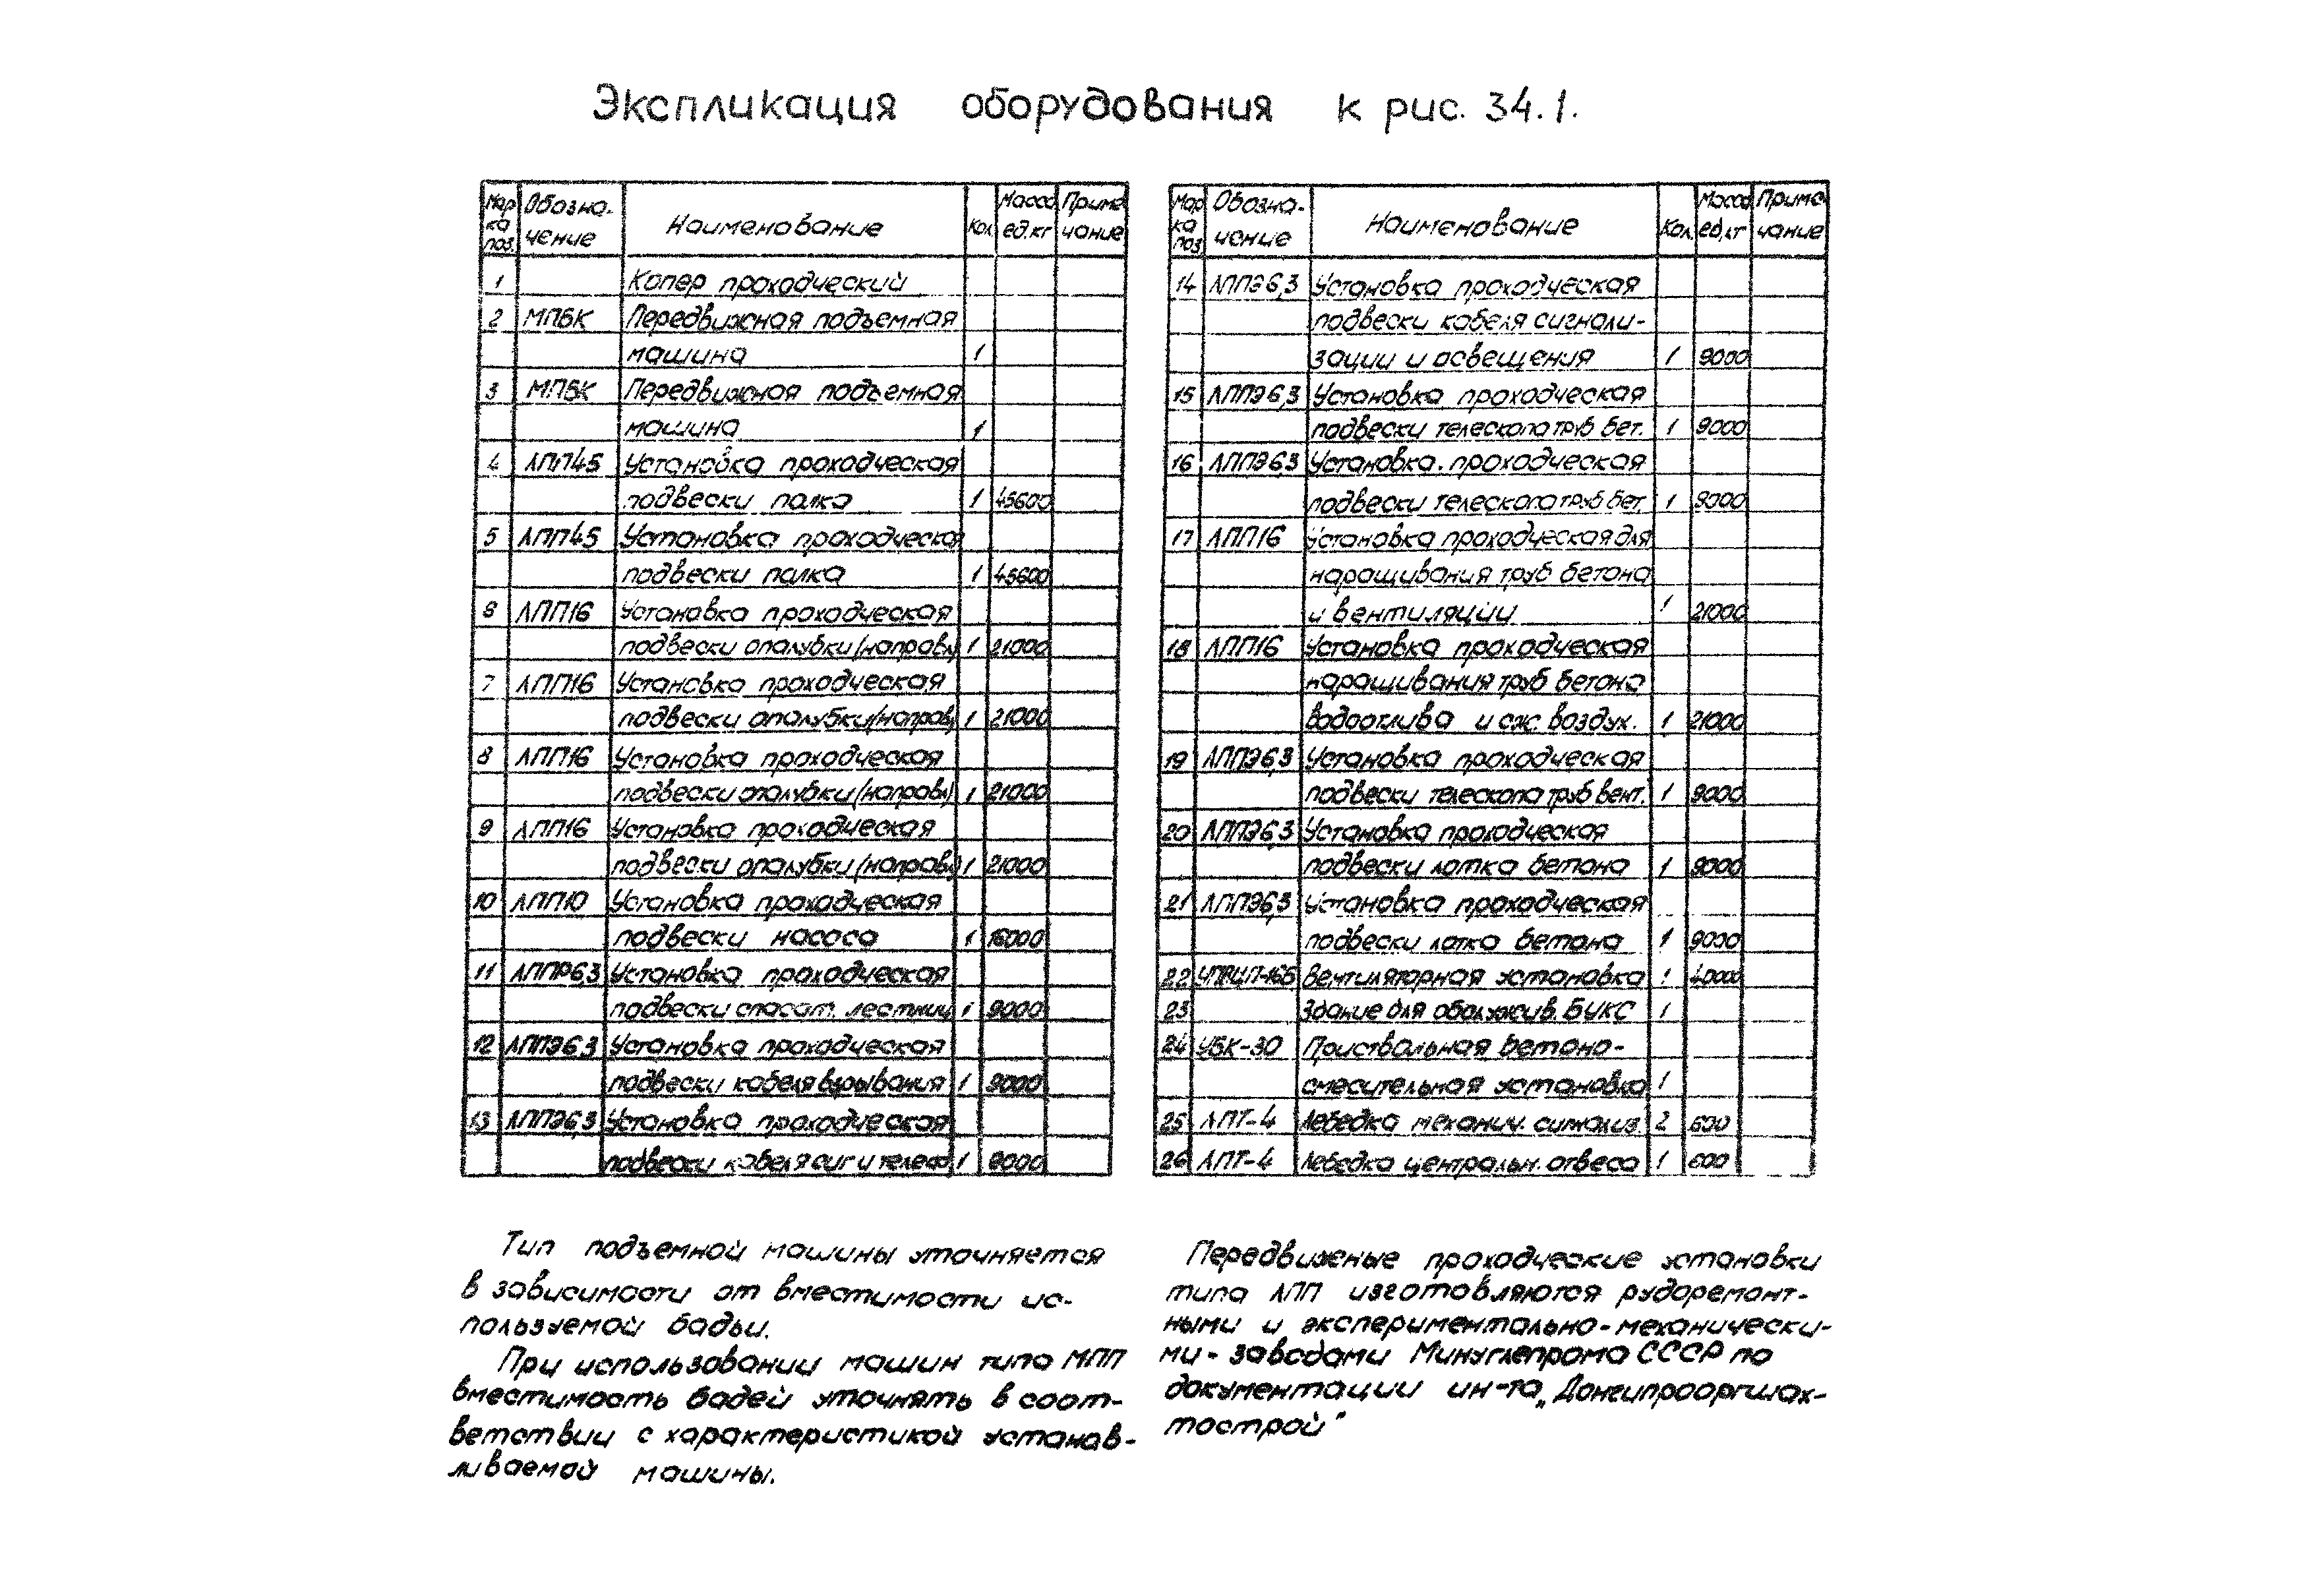 Экспликация оборудования к рис. 34.1.
Мар ка поз. Обозна- чение Наименование Кол. Масса ед.кг Приме чание
1 Копер проходческий
2 МПБК Передвижная подъемная
машина 1
3 МПБК Передвижная подъемная
машина 1
4 ЛПП45 Установка проходческая
подвески полка 1 45600
5 ЛПП45 Установка проходческая
подвески полка 1 45600
6 ЛПП16 Установка проходческая
подвески опалубки (направл) 1 21000
7 ЛПП16 Установка проходческая
подвески опалубки (направ) 1 21000
8 ЛПП16 Установка проходческая
подвески опалубки (направл) 1 21000
9 ЛПП16 Установка проходческая
подвески опалубки (направл) 1 21000
10 ЛПП10 Установка проходческая
подвески насоса 1 16000
11 ЛППР6,3 Установка проходческая
подвески спасат. лестниц 1 9000
12 ЛППЭ6,3 Установка проходческая
подвески кабеля взрывания 1 9000
13 ЛППЭ6,3 Установка проходческая
подвески кабеля сиг и телеф 1 9000
Мар ка поз Обозна- чение Наименование Кол. Масса ед.кг Приме чание
14 ЛППЭ6,3 Установка проходческая
подвески кабеля сигнали-
зации и освещения 1 9000
15 ЛППЭ6,3 Установка проходческая
подвески телескопа труб бет. 1 9000
16 ЛППЭ6,3 Установка проходческая
подвески телескопа труб бет. 1 9000
17 ЛПП16 Установка проходческая для
наращивания труб бетона
и вентиляции 1 21000
18 ЛПП16 Установка проходческая
наращивания труб бетона
водоотлива и сж. воздух. 1 21000
19 ЛППЭ6,3 Установка проходческая
подвески телескопа труб вент. 1 9000
20 ЛППЭ6,3 Установка проходческая
подвески лотка бетона 1 9000
21 ЛППЭ6,3 Установка проходческая
подвески лотка бетона 1 9000
22 Вентиляторная установка 1 40000
23 Здание для обслужив. БУКС 1
24 УБК-30 Приствольная бетоно-
смесительная установка 1
25 ЛПТ-4 Лебедка механич. сигнализ. 2 600
26 ЛПТ-4 Лебедка центральн. отвеса 1 600
Тип подъемной машины уточняется
в зависимости от вместимости ис-
пользуемой бадьи.
При использовании машин типа МПП
вместимость бадей уточнять в соот-
ветствии с характеристикой устанав-
ливаемой машины.
Передвижные проходческие установки
типа ЛПП изготовляются рудоремонт-
ными и экспериментально-механически-
ми - заводами Минуглепрома СССР по
документации ин-та „Донгипрооргшах-
тострой"